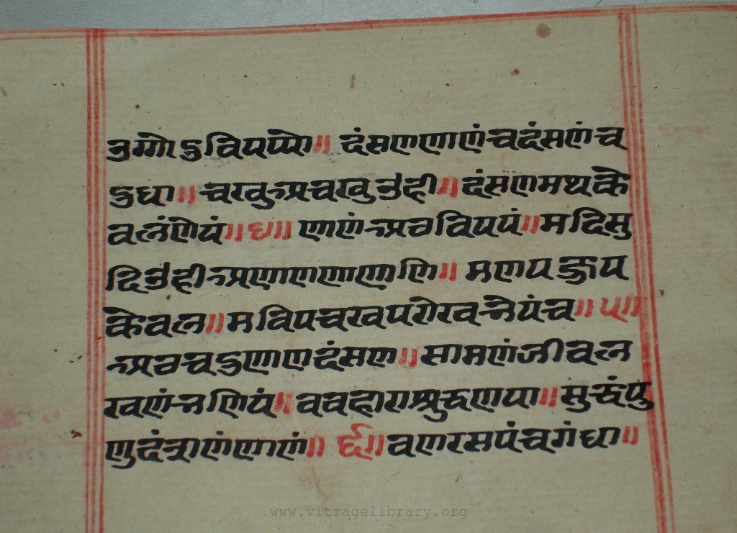 उग्गोदुवियप्पो॥ दंसणणाणंचदंसणंच
दुधा॥चखुअचखुउही॥दंसणमथके
वलंणेयं॥४॥ णाणंअठवियपं॥मदिसु
दिउहीअणाणणाणाणि॥ मणपज्जय
केवल॥मविपचखपरोखभेयंच॥५॥
अठचदुणाणदंसण॥सामणंजीवल
खणंभणियं॥ववहाराशुद्धणया॥सुद्धंपु
णुदंसणंणाणं॥६॥वणरसपंचगंधा॥
www.vitragelibrary.org